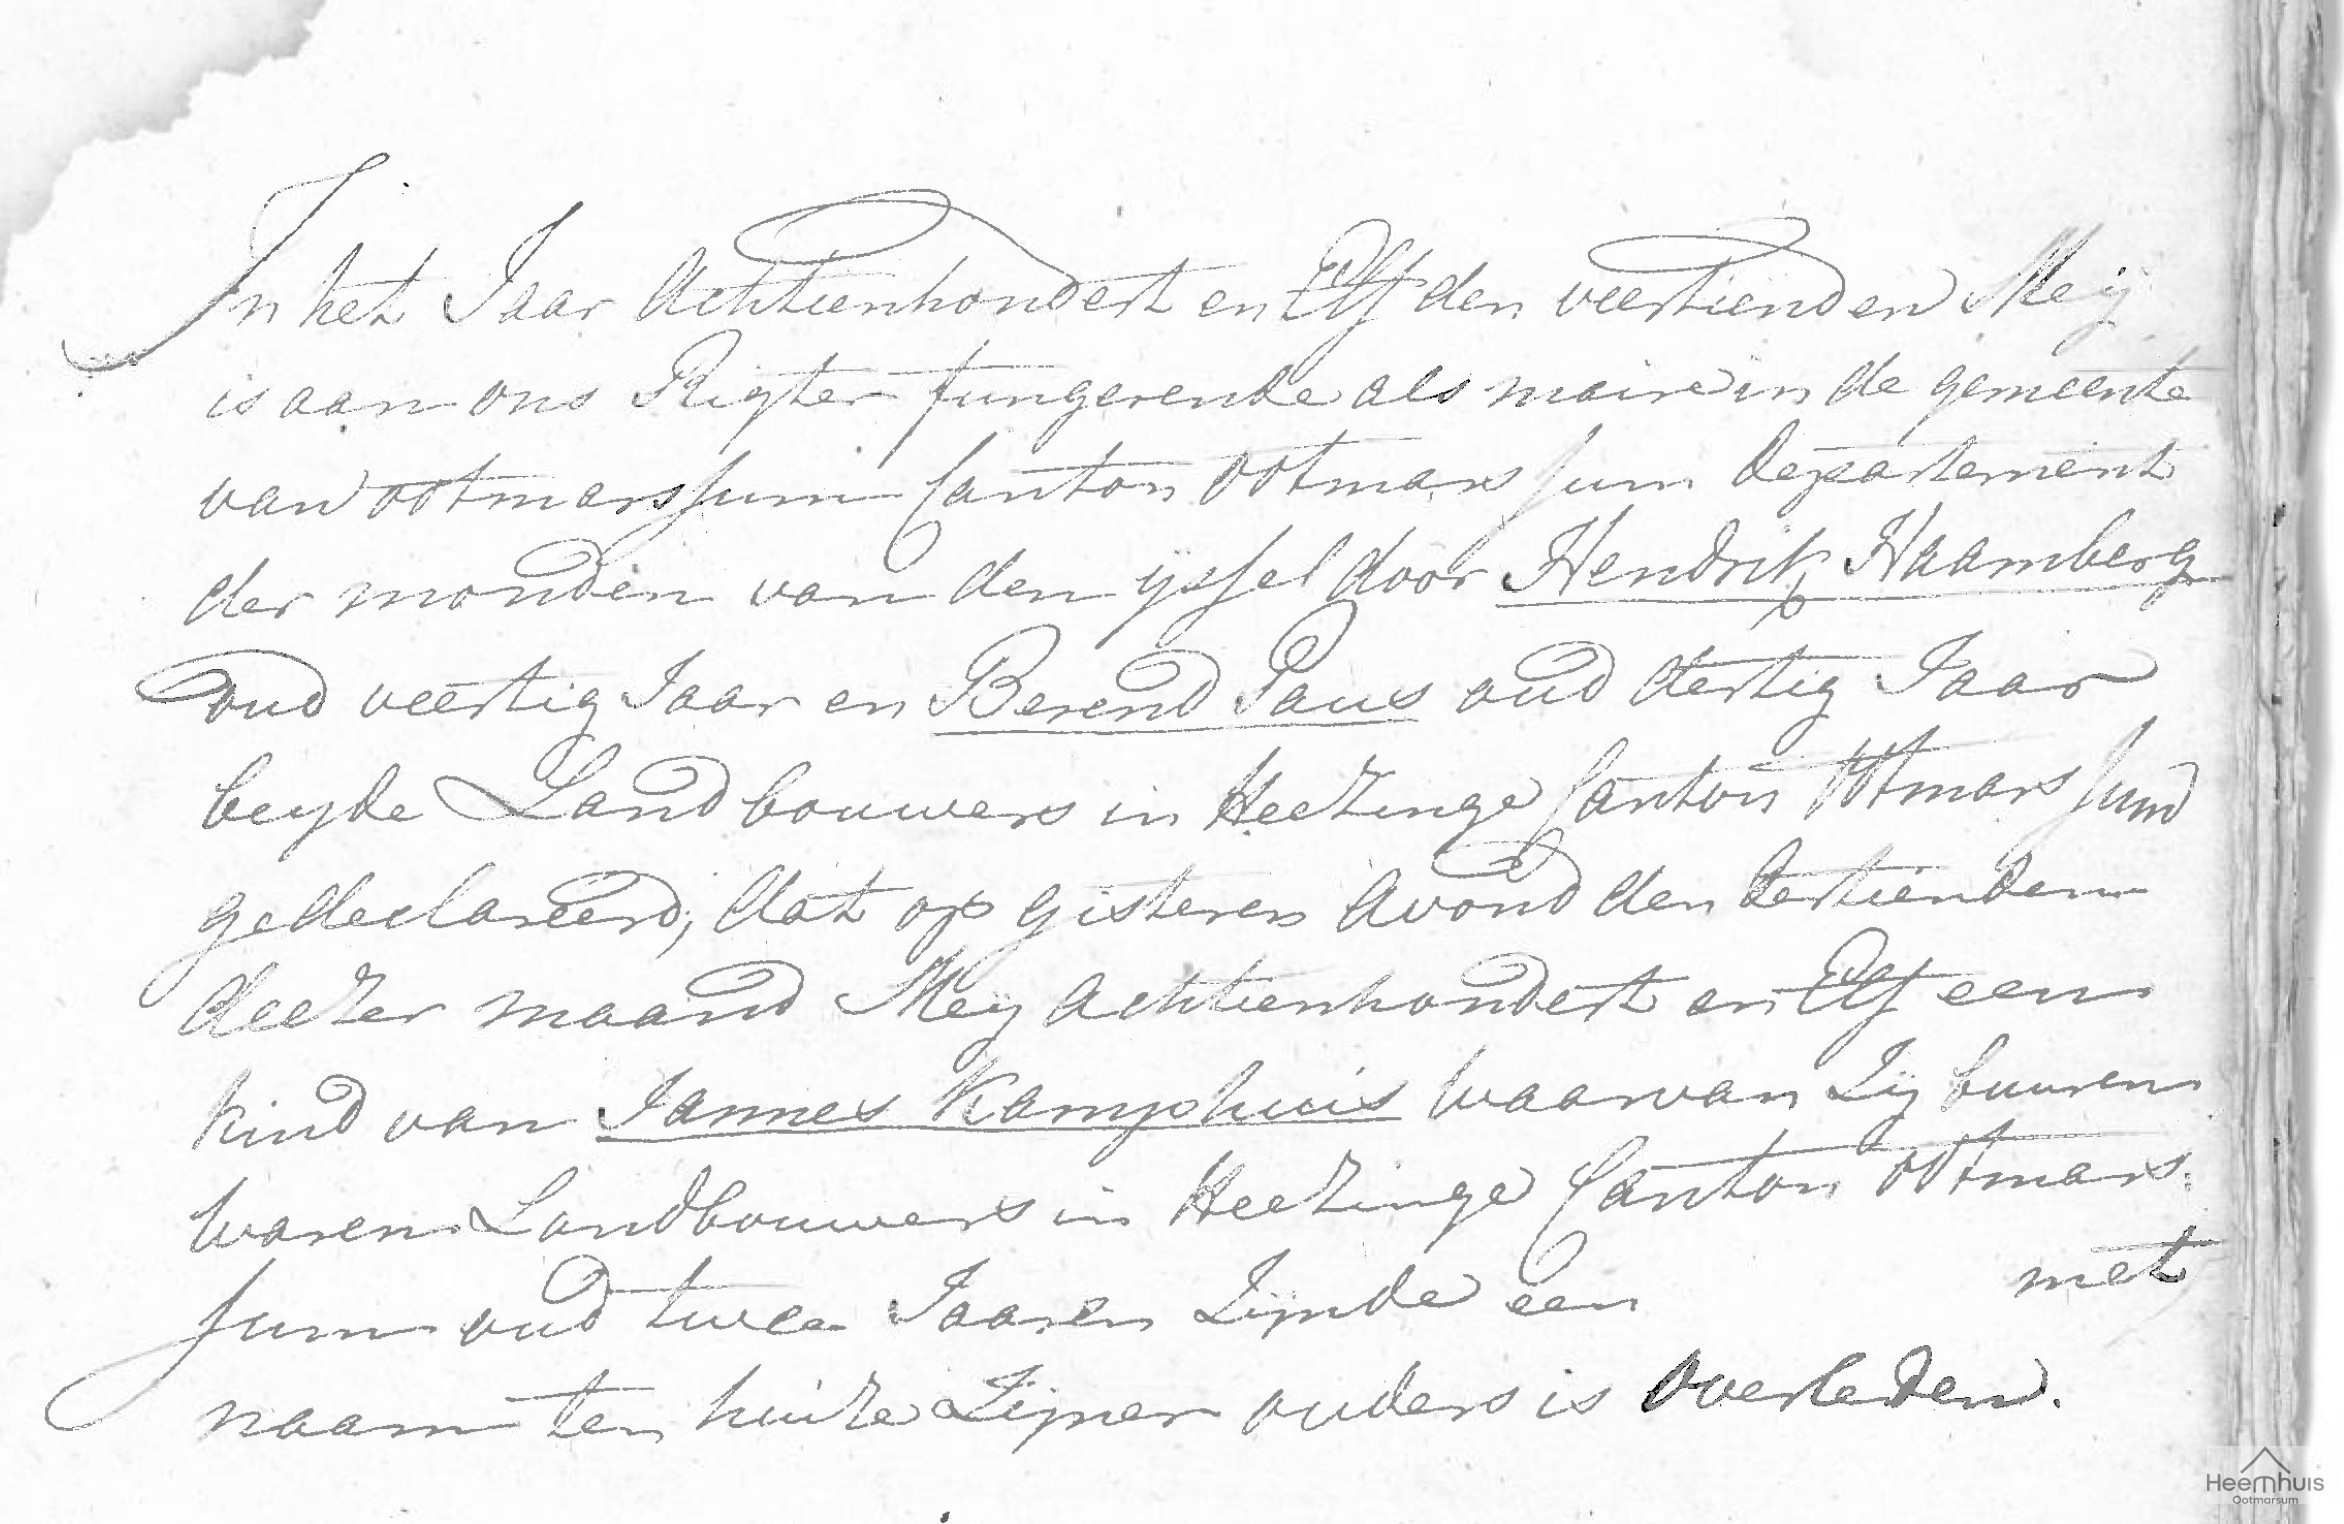 In het Jaar Achtienhondert en Elf den veertienden Meij
is aan ons Rigter fungerende als maire in de gemeente
van ootmarssum Canton Ootmarssum departement
der monden van den ijssel door Hendrik Haamberg
oud veertig Jaar en Berend Paus oud dertig Jaar
beyde Landbouwers in Heezinge Canton Ootmarssum
gedeclareerd, dat op gisteren Avond den dertienden
deezer maand Mey Achtienhondert en Elf een
kind van Jannes Kamphuis waarvan Zij buuren
waren Landbouwers in Heezinge Canton Ootmars
sum oud twee Jaaren Zijnde een met
naam ten huize Zijner ouders is Overleden.
Heemhuis
Ootmarsum